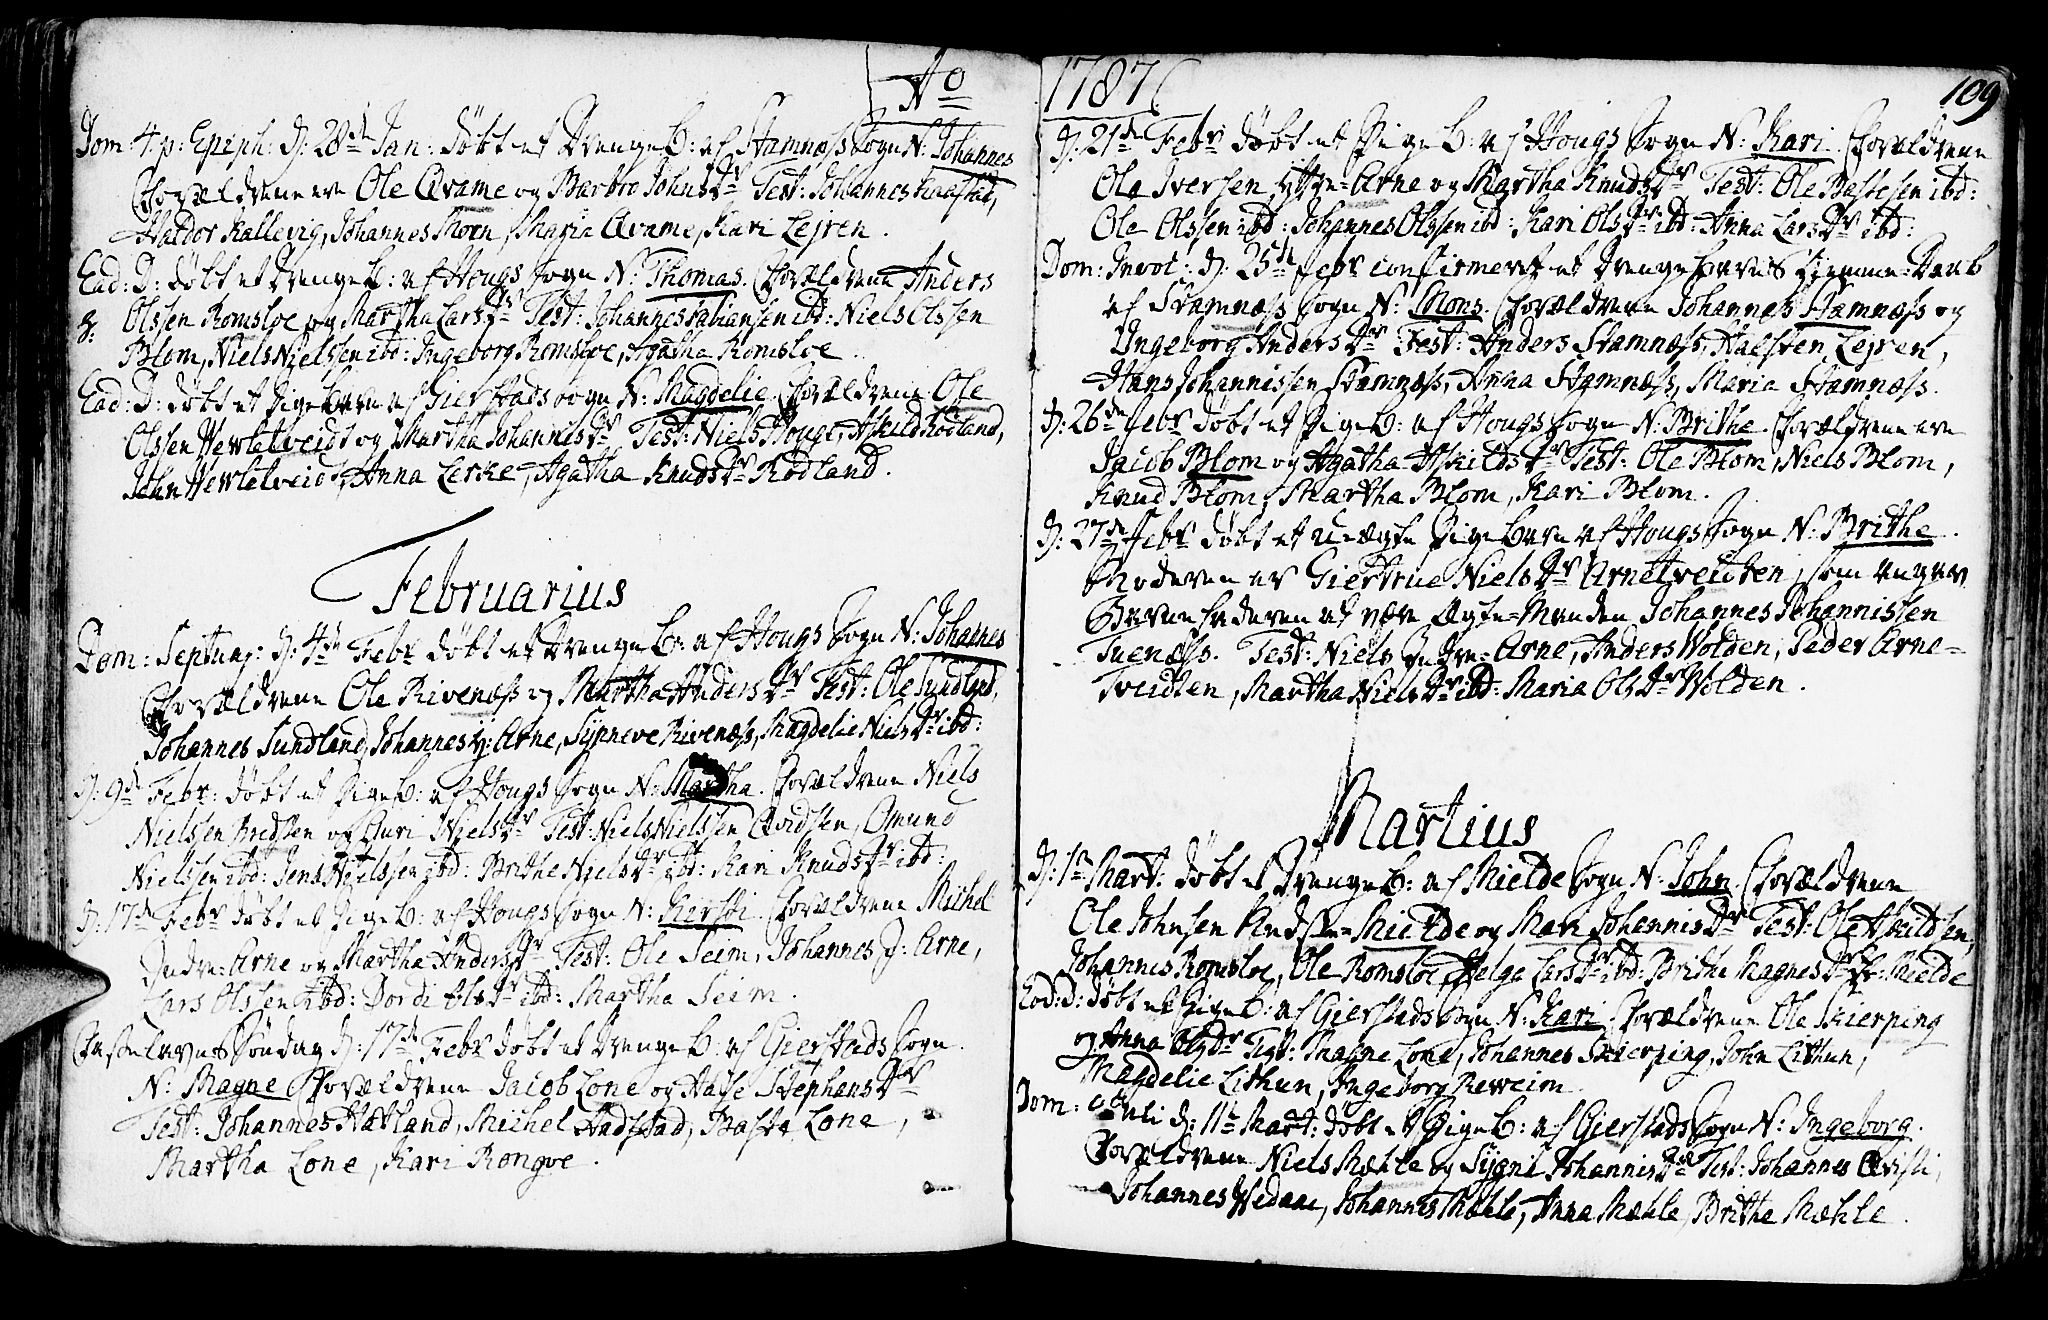 Ao
Dom: 4. p: Epiph: d: 28de Jan: døbt et DrengeB: af Stamnæss Sogn N: Johannes
Forældrene ere Ole Qvame og Barbro JohnsDr Test: Johannes
Haldor Kallevig, Johannes Moen, Maria Qvame, Kari Lejren.
Ead: D: døbt et DrengeB: af Hougs Sogn N: Thomas. Forældrene Anders
Olssen Romsloe og Martha LarsDr Test: Johannes Fabiansen ibd: Niels Olssen
Blom, Niels Nielssen ibd: Ingeborg Romsloe, Agatha Romsloe.
Ead: D: døbt et Pigebarn af Gierstad Sogn N: Magdelie Forældrene Ole
Olssen Hewletveidt og Martha JohannisDr Test: Niels Houge, Askild Rødland,
John Hewletveidt, Anna Lerke, Agatha KnudsDr Rødland.
Februarius
Dom: Septuag: d: 4de Febr døbt et DrengeB: af Hougs Sogn N: Johannes
Forældrene Ole Rivenæss og Martha AndersDr Test: Ole Sundland,
Johannes Sundland, Johannes Y: Arne, Synneve Rivenæss, Magdelie NielsDr ibd:
d: 9de Febr: døbt et PigeB: af Hougs Sogn N: Martha. Forældrene Niels
Nielssen og Guri NielsDr Test: Niels Nielssen Omund
Nielssen ibd: Jens Nielssen ibd: Brithe NielsDr ibd: Kari KnudsDr ibd:
d: 17de Febr døbt et PigeB: af Hougs Sogn N: Kirsti Forældrene Michel
Indre-Arne og Martha AndersDr Test: Ole Seim, Johannes J: Arne,
Lars Olssen ibd: Dordi OlsDr ibd: Martha Seim.
Fastelavns Søndag d: 17de Febr døbt et DrengeB: af Gierstads Sogn
N: Magne Forældrene Jacob Lone og Aase StephansDr
Test: Johannes Hætland, Michel Aadstad, Baste Lone,
Martha Lone, Kari Rongve.
1787
109
d: 21de Febr døbt et PigeB: af Hougs Sogn N: Kari. Forældrene
Ole Iversen Yttre-Arne og Martha KnudsDr Test: Ole Bessesen ibd:
Ole Olssen ibd: Johannes Olssen ibd: Kari OlsDr ibd: Anna LarsDr ibd:
Dom: Invoc: d: 25de Febr confirmeret et Drengebarns Hiemme-Daab
af Stamnæss Sogn N: Mons. Forældrene Johannes Stamnæss og
Ingeborg AndersDr Test: Anders Stamnæss, Halsten Lejren,
Hans Johannissen Stamnæss, Anna Stamnæss, Maria Stamnæss.
d: 26de Febr døbt et PigeB: af Hougs Sogn N: Brithe. Forældrene ere
Jacob Blom og Agatha AskildsDr Test: Ole Blom, Niels Blom,
Knud Blom, Martha Blom, Kari Blom.
d: 27de Febr døbt et uægte Pigebarn af Hougs Sogn N: Brithe.
Moderen er Giertrue NielsDr Arnetveidten, som angav
Barnefaderen at være Ægte-Manden Johannes Johannissen
Tuenæss. Test: Niels Indre-Arne, Anders Wolden, Peder Arne-
Tveidten, Martha NielsDr ibd: Maria OlsDr Wolden.
Martius
d: 1te Mart: døbt et DrengeB: af Mielde Sogn N: John Forældrene
Ole Johnsen Mielde og Mari JohannisDr Test: Ole Askildsen,
Johannes Romsloe, Ole Romsloe, Helge LarsDr ibd: Brithe MagnesDr Mielde
Eod: D: døbt et PigeB: af Gierstad Sogn N: Kari. Forældrene Ole Skierping
og Anna OlsDr Test: Magne Lone, Johannes Skierping, John Lithun,
Magdelie Lithun, Ingeborg Reweim.
Dom: Oculi d: 11te Mart: døbt et PigeB: af Gierstad Sogn N: Ingeborg.
Forældrene Niels Mæhle og Sygni JohannisDr Test: Johannes Qvisti,
Johannes Wedaae, Johannes Mæhle, Anna Mæhle, Brithe Mæhle.